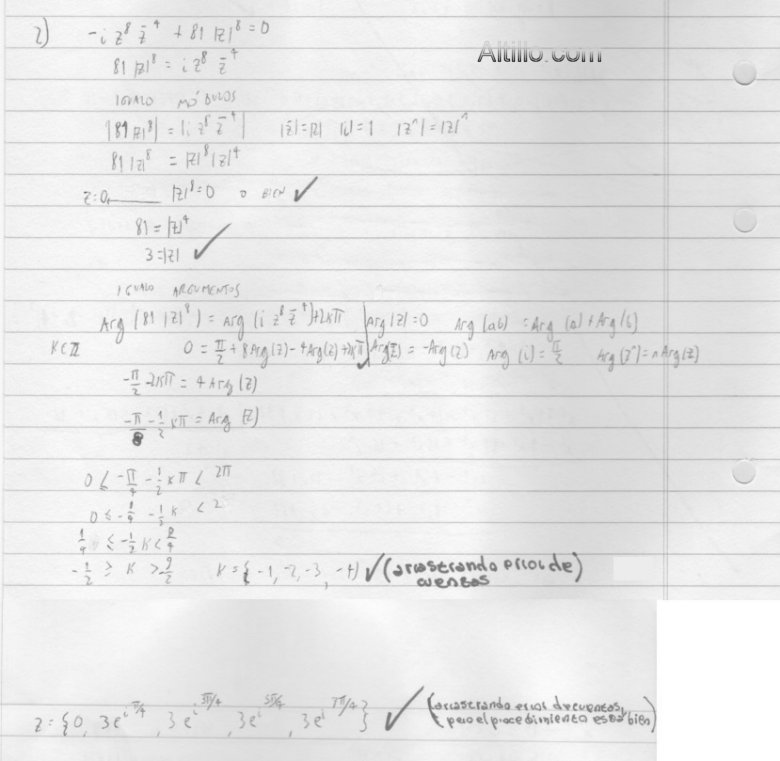 2) -i z⁸ z̄⁴ + 81 |z|⁸ = 0
Altillo.com
81 |z|⁸ = i z⁸ z̄⁴
IGUALO MÓDULOS
|81 |z|⁸| = |i z⁸ z̄⁴| |z̄|=|z| |i|=1 |zⁿ|=|z|ⁿ
81 |z|⁸ = |z|⁸ |z|⁴
z=0 |z|⁸=0 o BIEN ✓
81 = |z|⁴
3=|z| ✓
IGUALO ARGUMENTOS
Arg (81 |z|⁸) = Arg (i z⁸ z̄⁴)+2kπ Arg |z|=0 Arg (ab) = Arg (a) + Arg (b)
K∈ℤ 0 = π/2 + 8Arg(z) - 4Arg(z) + 2kπ ✓ Arg(z̄) = -Arg(z) Arg (i) = π/2 Arg (zⁿ) = n Arg(z)
-π/2 - 2kπ = 4 Arg (z)
-π/8 - 1/2 kπ = Arg (z)
0 ≤ -π/4 - 1/2 kπ < 2π
0 ≤ -1/4 - 1/2 k < 2
1/4 ≤ -1/2 k < 9/4
-1/2 ≥ k > -9/2 k = {-1, -2, -3, -4} ✓ (arrastrando error de
cuentas)
z = {0, 3e^{iπ/4}, 3e^{i3π/4}, 3e^{i5π/4}, 3e^{i7π/4}} ✓ (arrastrando error de cuentas,
pero el procedimiento está bien)